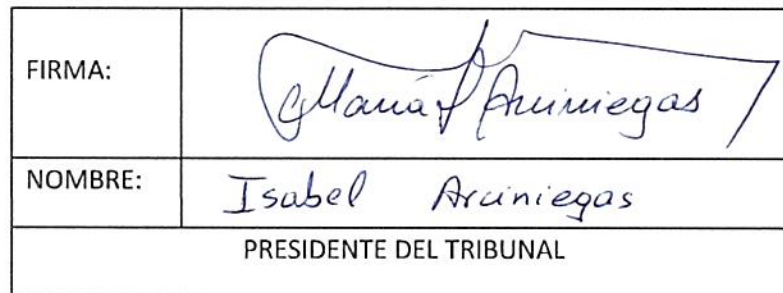 FIRMA: María I Arciniegas
NOMBRE: Isabel Arciniegas
PRESIDENTE DEL TRIBUNAL